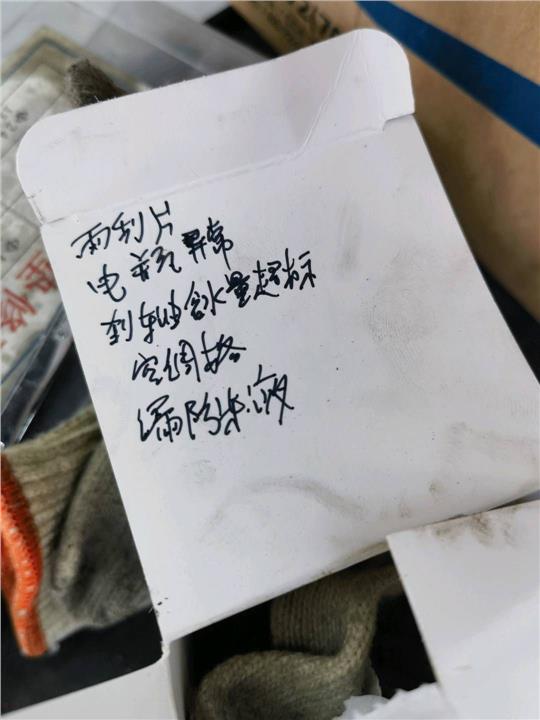 雨刮片
电瓶异常
刹车油含水量超标
空调格
漏防冻液
修